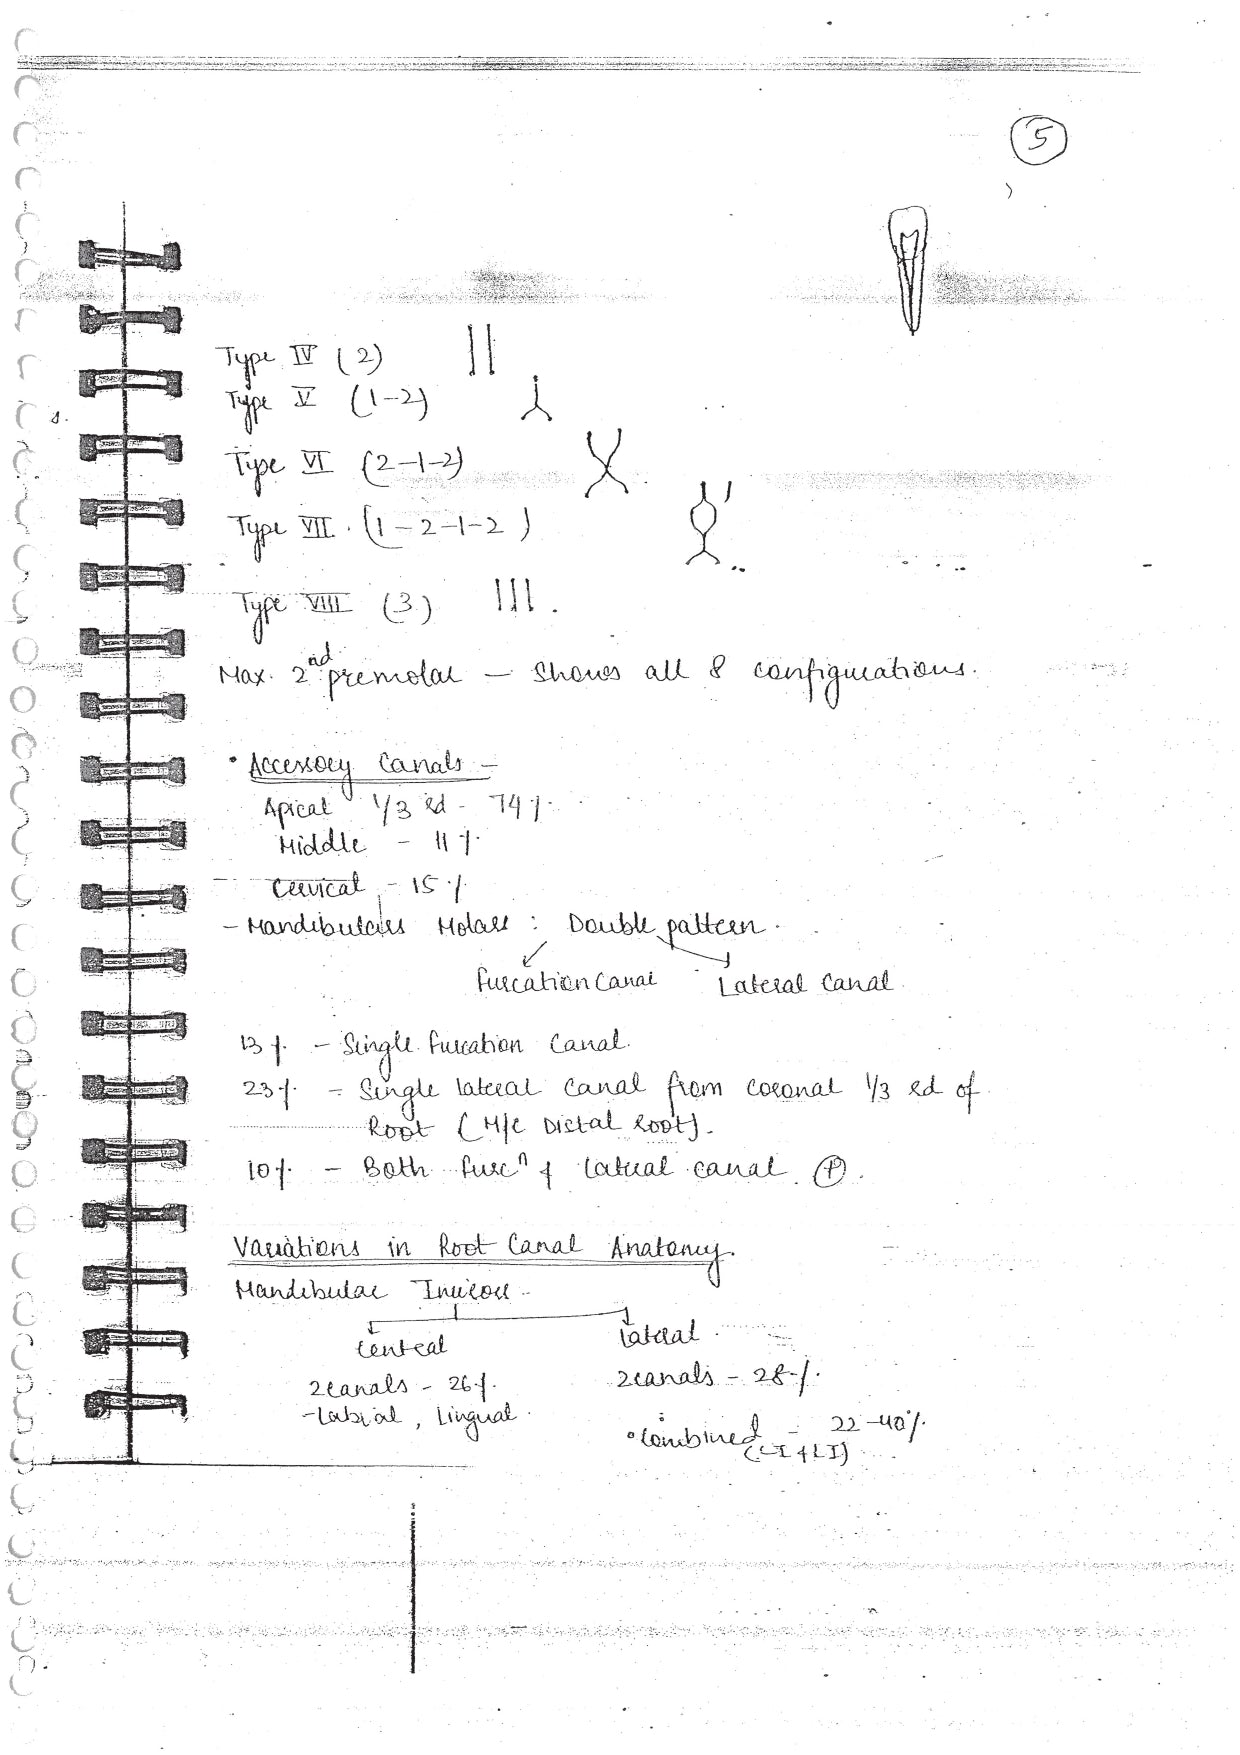 5
Type IV (2)
Type V (1-2)
Type VI (2-1-2)
Type VII (1-2-1-2)
Type VIII (3)
Max. 2nd premolar - Shows all 8 configurations.
• Accessory Canals -
Apical 1/3 rd - 74%
Middle - 11%
Cervical - 15%
- Mandibulars Molars : Double pattern
Furcation Canal Lateral Canal
13% - Single furcation Canal
23% - Single lateral Canal from coronal 1/3 rd of
Root (M/C Distal root).
10% - Both furcn & lateral canal (+).
Variations in Root Canal Anatomy.
Mandibular Incisors
Central Lateral
2 canals - 26%. 2 canals - 28%.
- Labial, Lingual
• Combined - 22-40%
(CI & LI)